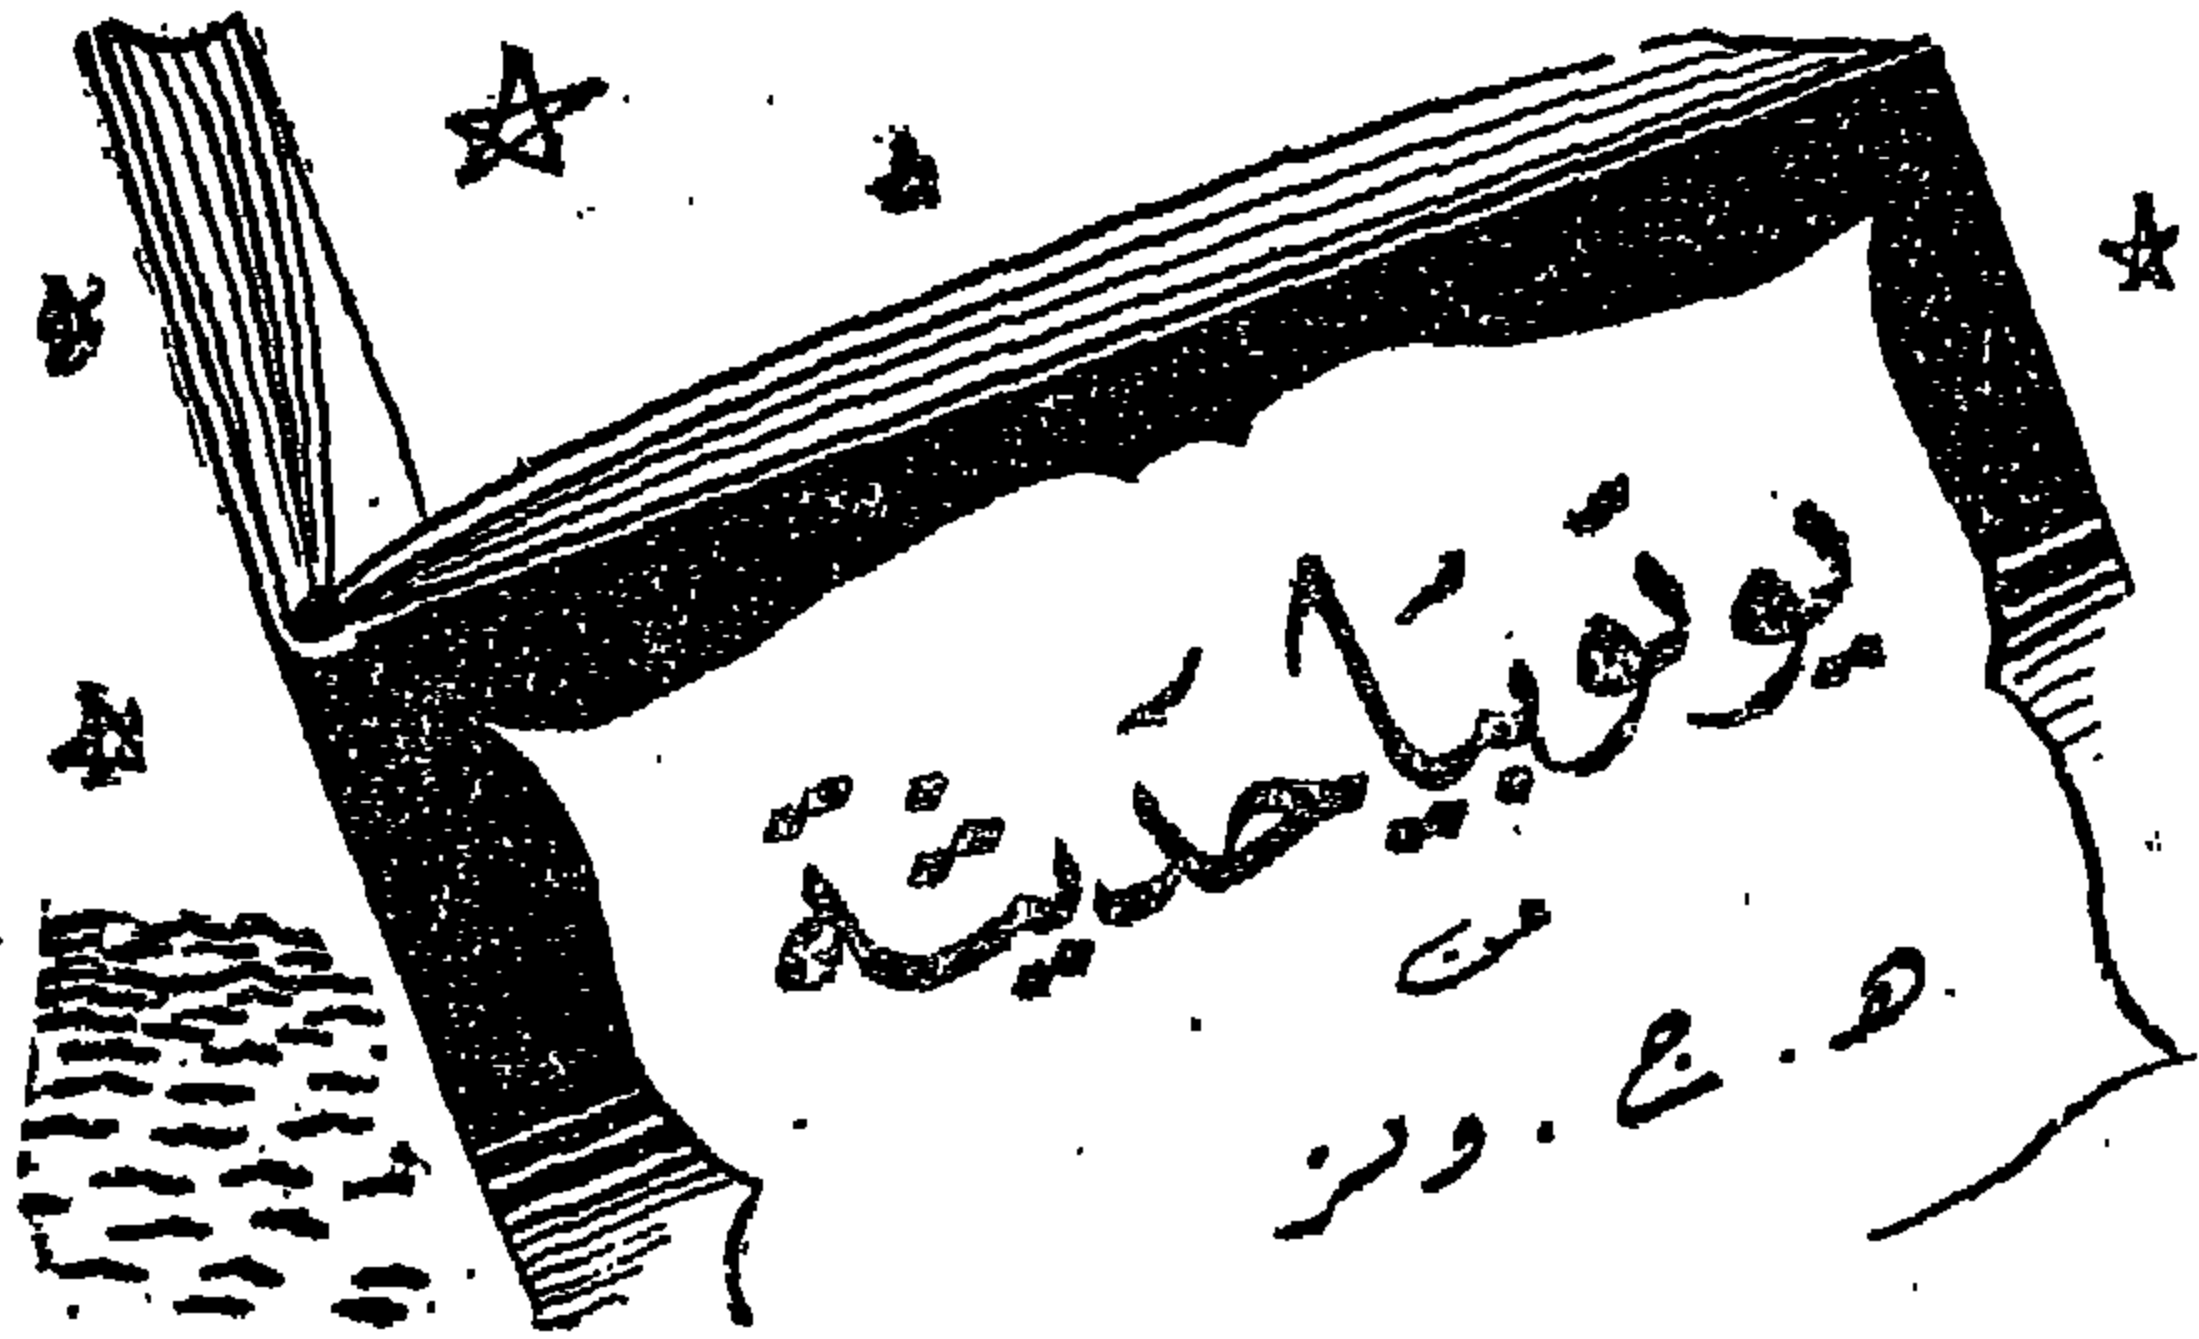 يوتوبيَا حَديثة
من
ه . ج . ولز